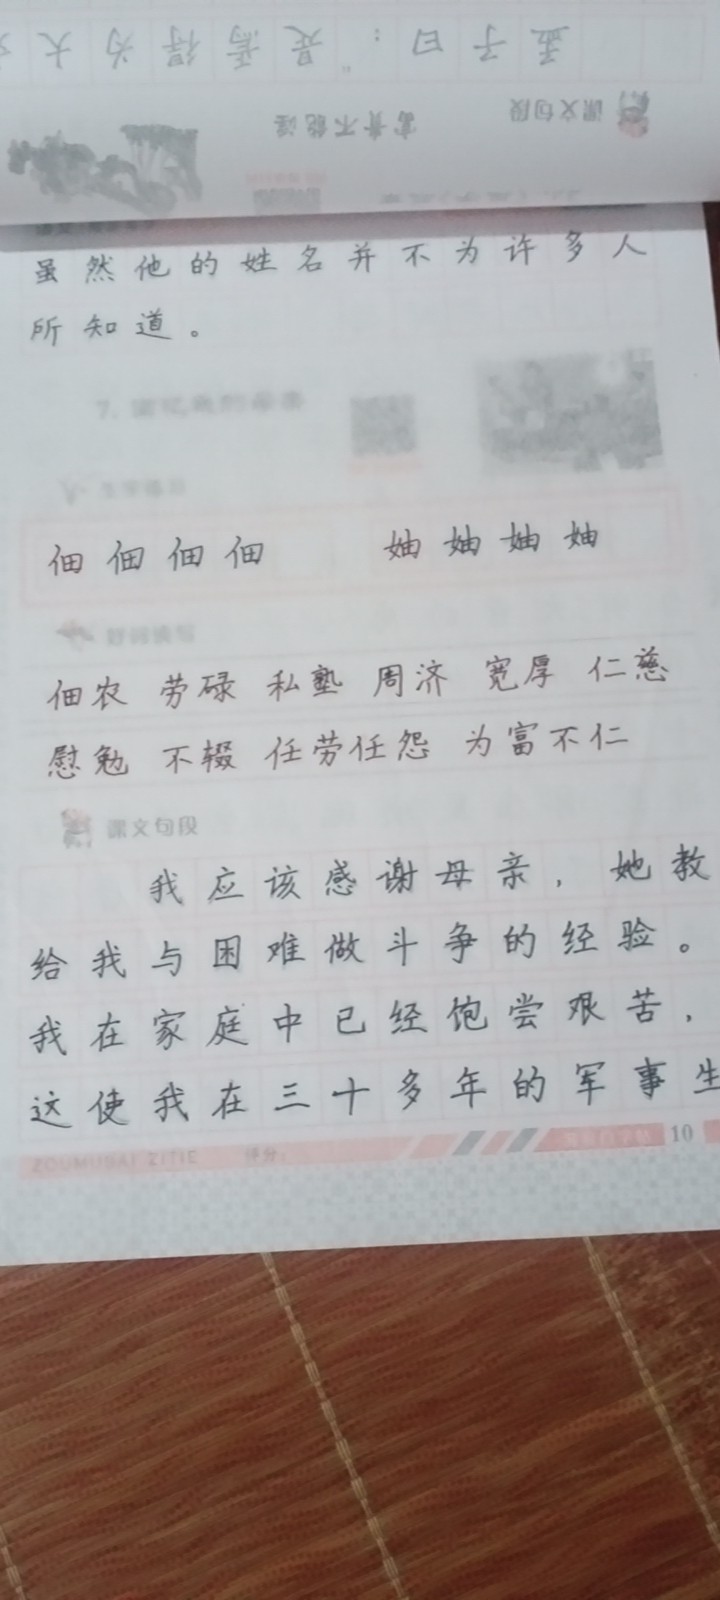 孟子曰：“是焉得为大
课文句段
富贵不能淫
虽然他的姓名并不为许多人
所知道。
7. 回忆我的母亲
生字练习
佃佃佃佃 妯妯妯妯
好词读写
佃农 劳碌 私塾 周济 宽厚 仁慈
慰勉 不辍 任劳任怨 为富不仁
课文句段
我应该感谢母亲，她教
给我与困难做斗争的经验。
我在家庭中已经饱尝艰苦，
这使我在三十多年的军事生
ZOUMOBAI ZITIE 评分：
10